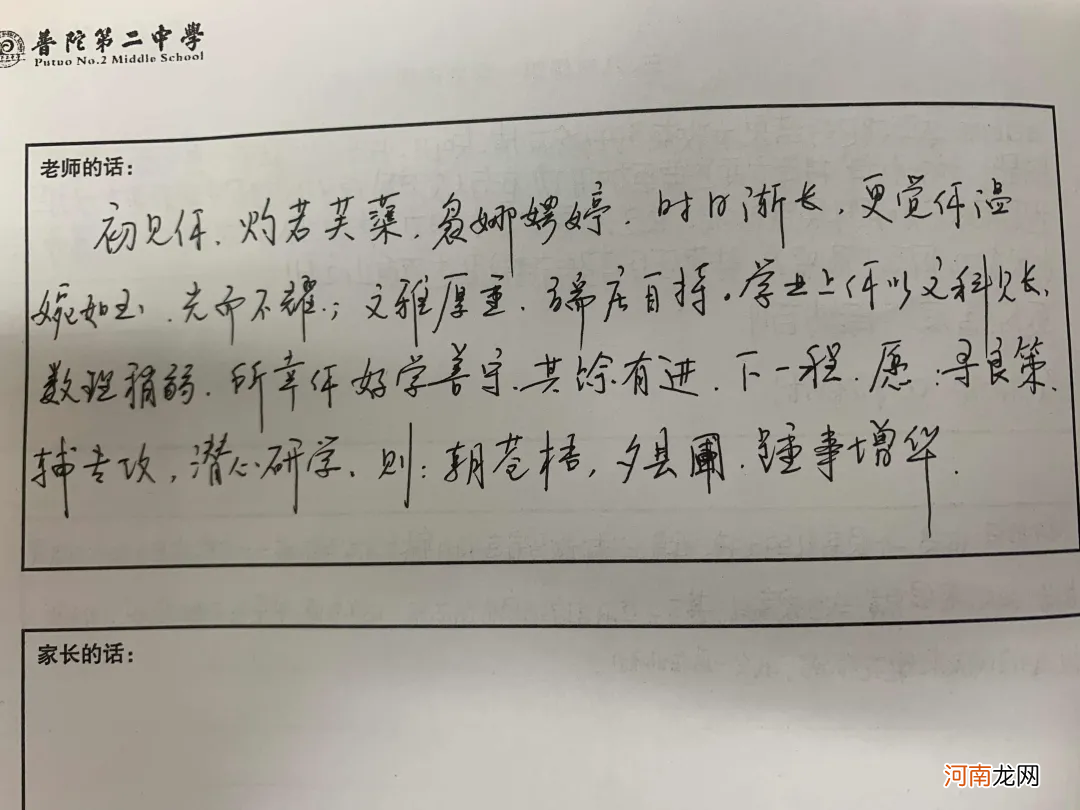 普陀第二中學
Putuo No.2 Middle School
老师的话：
初见伢、灼若芙蕖、袅娜娉婷、时日渐长、更觉伢温
婉如玉、光而不耀；文雅厚重、端庄自持。学业上伢以文科见长、
数理稍弱、所幸伢好学善守、其馀有进、下一程、愿：寻良策、
辅专攻，潜心研学、则：朝苍梧，夕县圃、踵事增华.
家长的话：
河南龙网